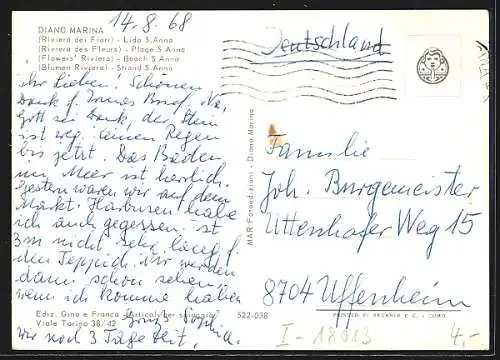 14.8.68
DIANO MARINA
(Riviera dei Fiori) - Lido S. Anna
(Riviera des Fleurs) - Plage S. Anna
(Flowers' Riviera) - Beach S. Anna
(Blumen Riviera) - Strand S. Anna
Ihr Lieben! Schönen
Dank f. Brief. Na,
Gott sei Dank, der Stein
ist weg. Keinen Regen
bis jetzt. Das Baden
im Meer ist herrlich.
Gestern waren wir auf dem
Markt. habe
ich auch gegessen. ist
3m nicht sehr lang f.
den Teppich. Ihr werdet
dann schon sehen,
wenn ich komme haben
Ediz. Gino e Franca - Articoli per spiaggia
Viale Torino 38/42
522-038
Gruß Sophia.
wir noch 3 Tage Zeit,
MAR Fotoedizioni - Diano Marina
Deutschland
Familie
Joh. Burgemeister
Uttenhofer Weg 15
8704 Uffenheim
I-18013
4,-